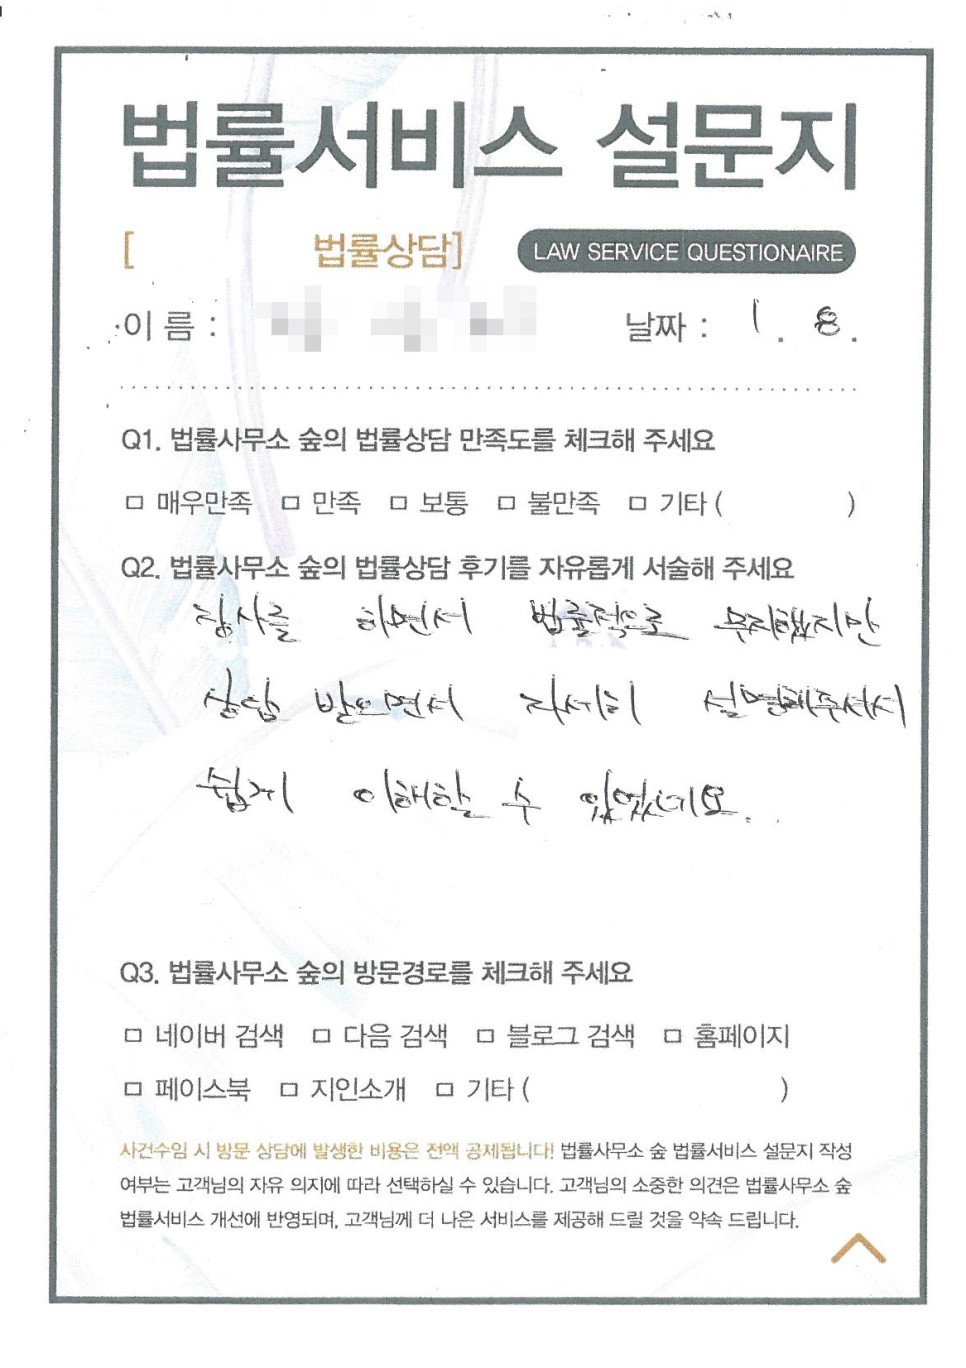 법률서비스 설문지
[ 법률상담]
LAW SERVICE QUESTIONAIRE
이 름 : 날짜 : 1 . 8 .
Q1. 법률사무소 숲의 법률상담 만족도를 체크해 주세요
□ 매우만족 □ 만족 □ 보통 □ 불만족 □ 기타 ( )
Q2. 법률사무소 숲의 법률상담 후기를 자유롭게 서술해 주세요
장사를 하면서 법률적으로 무지했지만
상담 받으면서 자세히 설명해주셔서
쉽게 이해할 수 있었네요.
Q3. 법률사무소 숲의 방문경로를 체크해 주세요
□ 네이버 검색 □ 다음 검색 □ 블로그 검색 □ 홈페이지
□ 페이스북 □ 지인소개 □ 기타 ( )
사건수임 시 방문 상담에 발생한 비용은 전액 공제됩니다! 법률사무소 숲 법률서비스 설문지 작성
여부는 고객님의 자유 의지에 따라 선택하실 수 있습니다. 고객님의 소중한 의견은 법률사무소 숲
법률서비스 개선에 반영되며, 고객님께 더 나은 서비스를 제공해 드릴 것을 약속 드립니다.